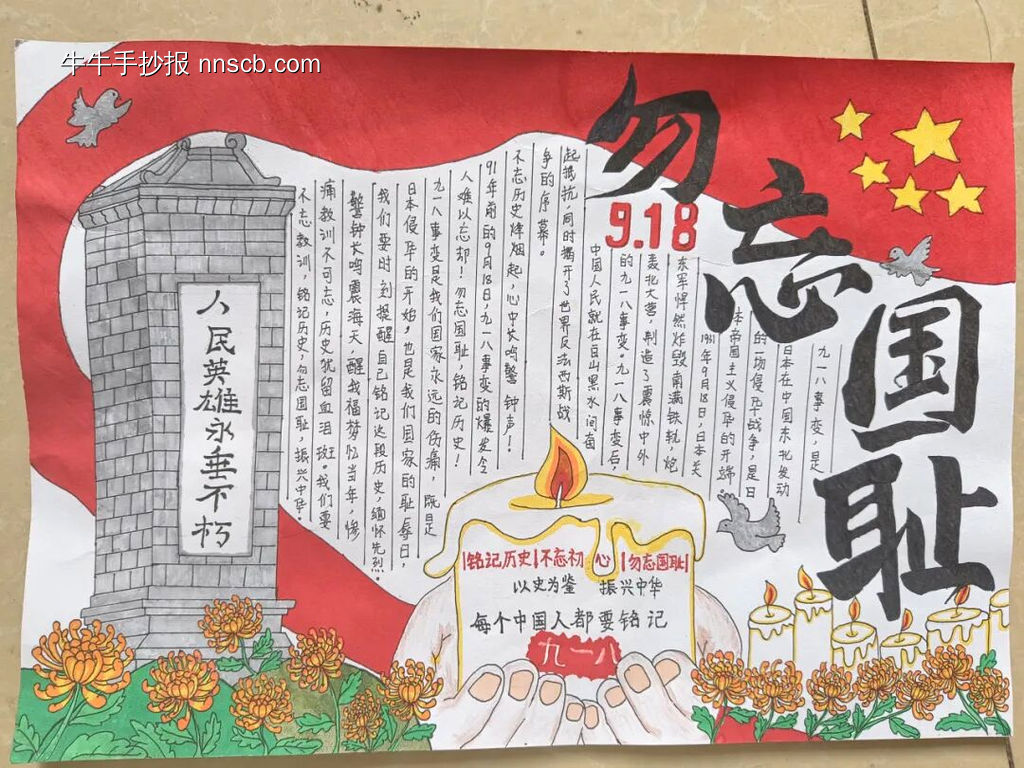 牛牛手抄报 nnscb.com
勿忘国耻
9.18
九一八事变，是
日本在中国东北发动
的一场侵华战争，是日
本帝国主义侵华的开端。
1931年9月18日，日本关
东军悍然炸毁南满铁轨，炮
轰北大营，制造了震惊中外
的九一八事变。九一八事变后，
中国人民就在白山黑水间奋
起抵抗，同时揭开了世界反法西斯战
争的序幕。
不忘历史烽烟起，心中长鸣警钟声！
91年前的9月18日，九一八事变的爆发令
人难以忘却！勿忘国耻，铭记历史！
九一八事变是我们国家永远的伤痛，既是
日本侵华的开始，也是我们国家的耻辱日，
我们要时刻提醒自己铭记这段历史，缅怀先烈。
警钟长鸣震海天，醒我福梦忆当年，惨
痛教训不可忘，历史犹留血泪斑。我们要
不忘教训，铭记历史，勿忘国耻，振兴中华。
人民英雄永垂不朽
铭记历史 不忘初心 勿忘国耻
以史为鉴 振兴中华
每个中国人都要铭记
九一八